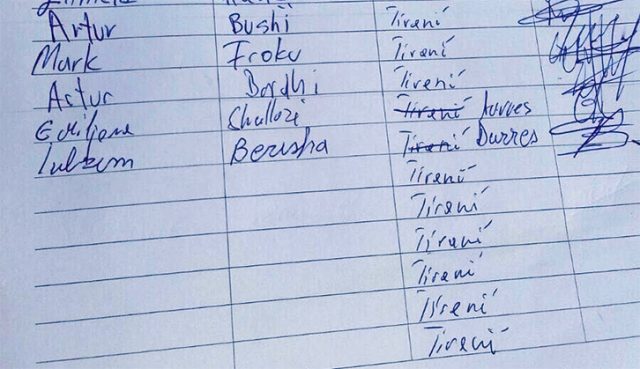 Artur Bushi Tiranë
Mark Froku Tiranë
Artur Bardhi Tiranë
Tiranë durres
Lulzim Berisha Tiranë Durres
Tiranë
Tiranë
Tiranë
Tiranë
Tiranë
Tiranë